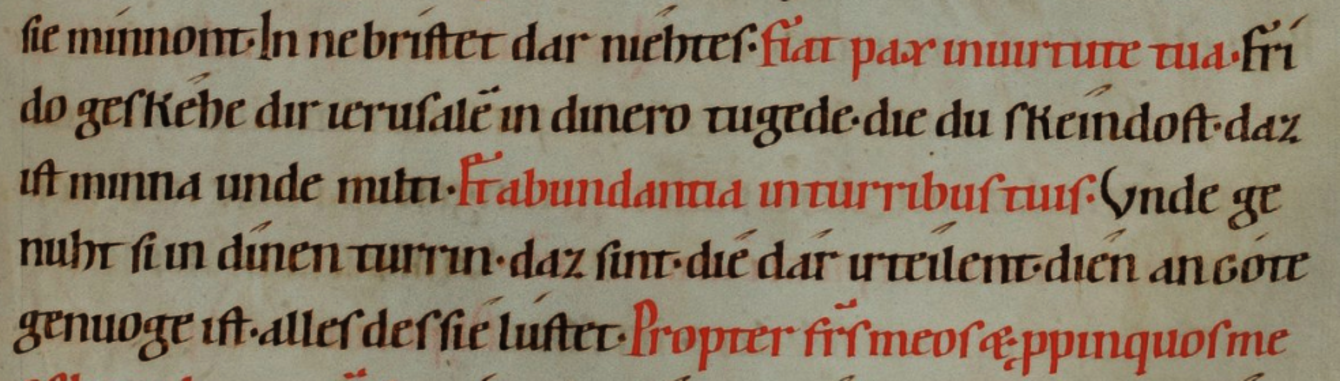 sie mínnont·In nebrístet dar niéhtes·fiat pax inuirtute tua·frí
do geskéhe dir ierusalē in dinero tugede·die du skeíndost·daz
ist minna unde milti·Et abundantia inturribus tuis·Vnde ge
nuht si in dínen turrin·daz sint·dié dár irteílent·dién an góte
genuoge ist·alles des sié lústet·Propter frs̄ meos & ꝓpinquos me